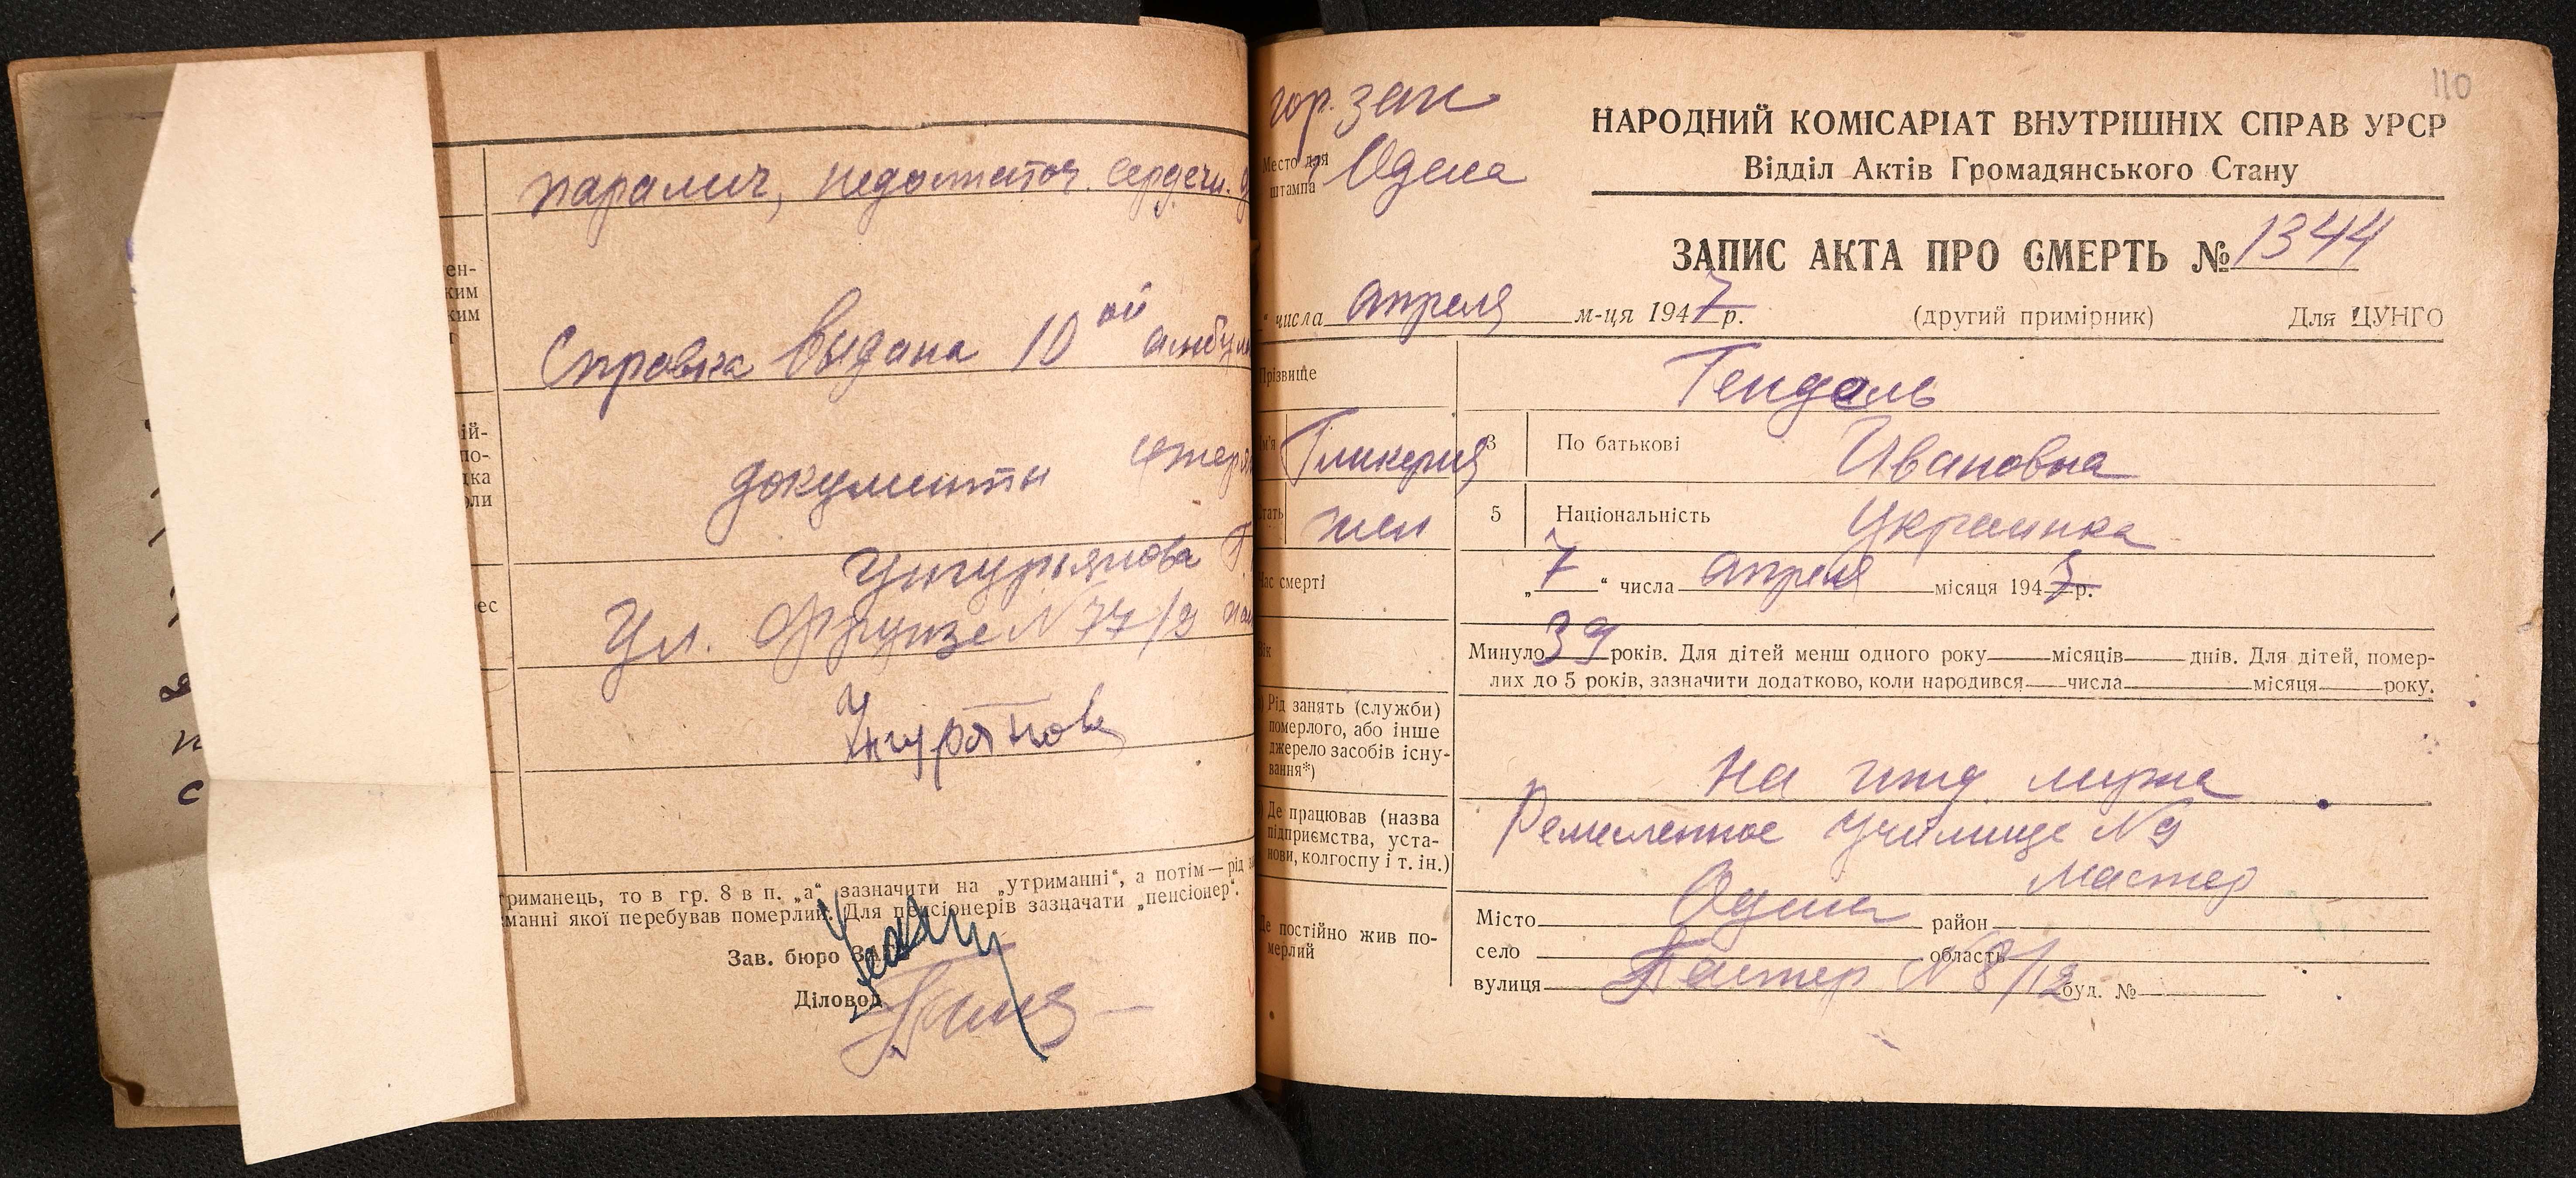 паралич, недостаточ. сердечн.
ен-
ким
ким
Справка выдана 10ой амбул
ій-
по-
дка
оли
документы утерян
Унгурьянова Г
ес
Ул. Фрунзе N 77/9
Унгурянова
триманець, то в гр. 8 в п. „а“ зазначити на „утриманні“, а потім — рід
манні якої перебував померлий. Для пенсіонерів зазначати „пенсіонер“.
Зав. бюро ЗАГС
Діловод
110
гор. заг
Место для штампа
Одесса
НАРОДНИЙ КОМІСАРІАТ ВНУТРІШНІХ СПРАВ УРСР
Відділ Актів Громадянського Стану
ЗАПИС АКТА ПРО СМЕРТЬ № 1344
“ числа апреля м-ця 1947 р. (другий примірник) Для ЦУНГО
Прізвище Гендель
м'я Гликерия 3 По батькові Ивановна
тать жен 5 Національність Украинка
Час смерті „7“ числа апреля місяця 1947 р.
ік
Минуло 39 років. Для дітей менш одного року місяців днів. Для дітей, помер-
лих до 5 років, зазначити додатково, коли народився числа місяця року.
) Рід занять (служби)
померлого, або інше
джерело засобів існу-
вання*)
На ижд. мужа
) Де працював (назва
підприємства, уста-
нови, колгоспу і т. ін.)
Ремесленное училище N 9
мастер
Де постійно жив по-
мерлий
Місто Одесса район
село область
вулиця Пастер N 8/12 буд. №